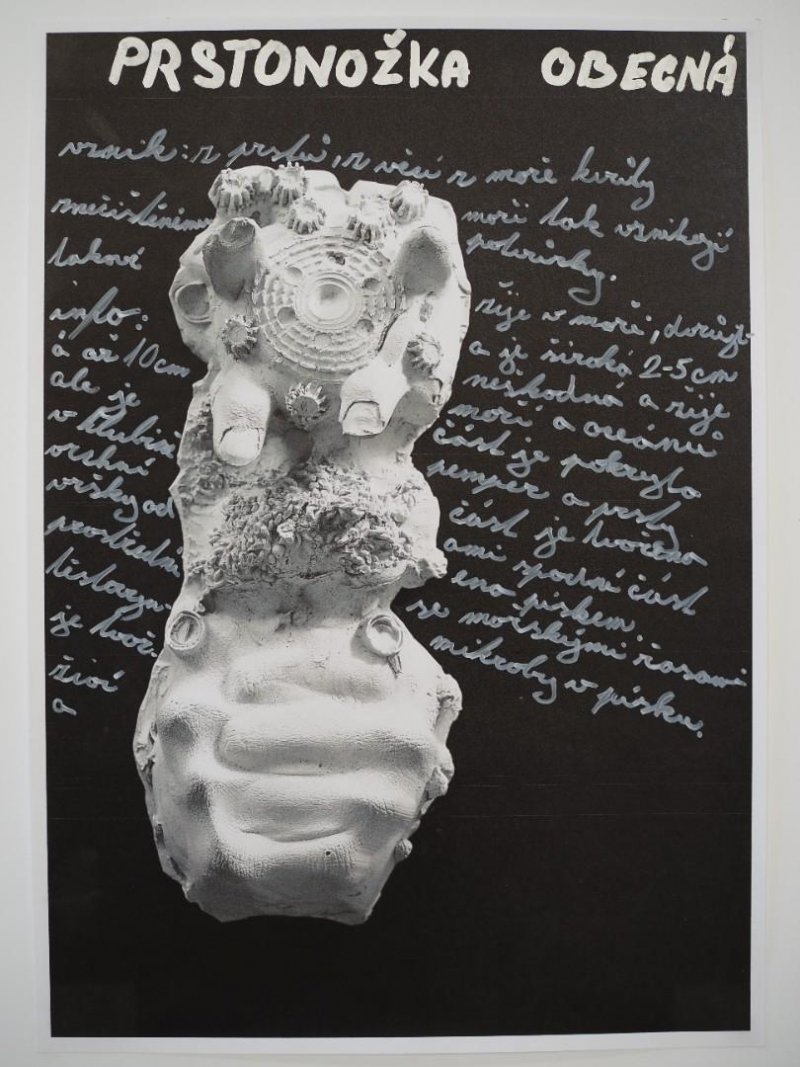 PRSTONOŽKA OBECNÁ
vznik: z prstů, z věcí z moře kvůly
znečištěnímu moři tak vznikají
takové potvůrky.
info: žije v moři, dorůst-
á až 10cm a je široká 2-5cm
ale je neškodná a žije
v hlubině moří a oceánů
vrchní část je pokryta
vršky od pemper a prsty
prostřední část je tvořena
těstovin ami spodní část
je tvoř ena pískem.
živí se mořskými řasami
a mikroby v písku.